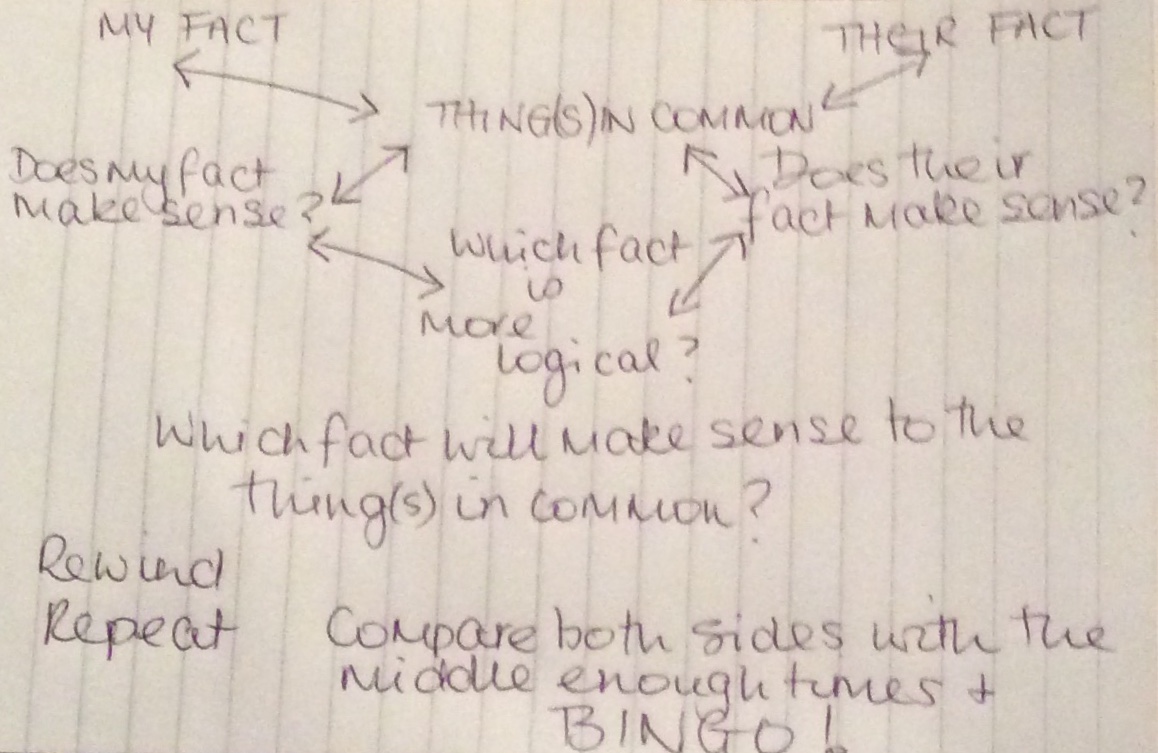 MY FACT
THEIR FACT
THING(S)IN COMMON
Does My fact
Make sense?
Does their
fact Make sense?
which fact
is
More
logical?
Which fact will Make sense to the
thing(s) in common?
Rewind
Repeat
Compare both sides with the
Middle enough times +
BINGO!